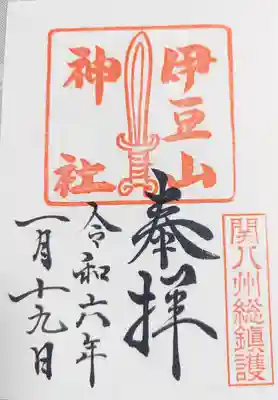 伊豆山
神社
奉拝
関八州総鎮護
令和六年
一月十九日